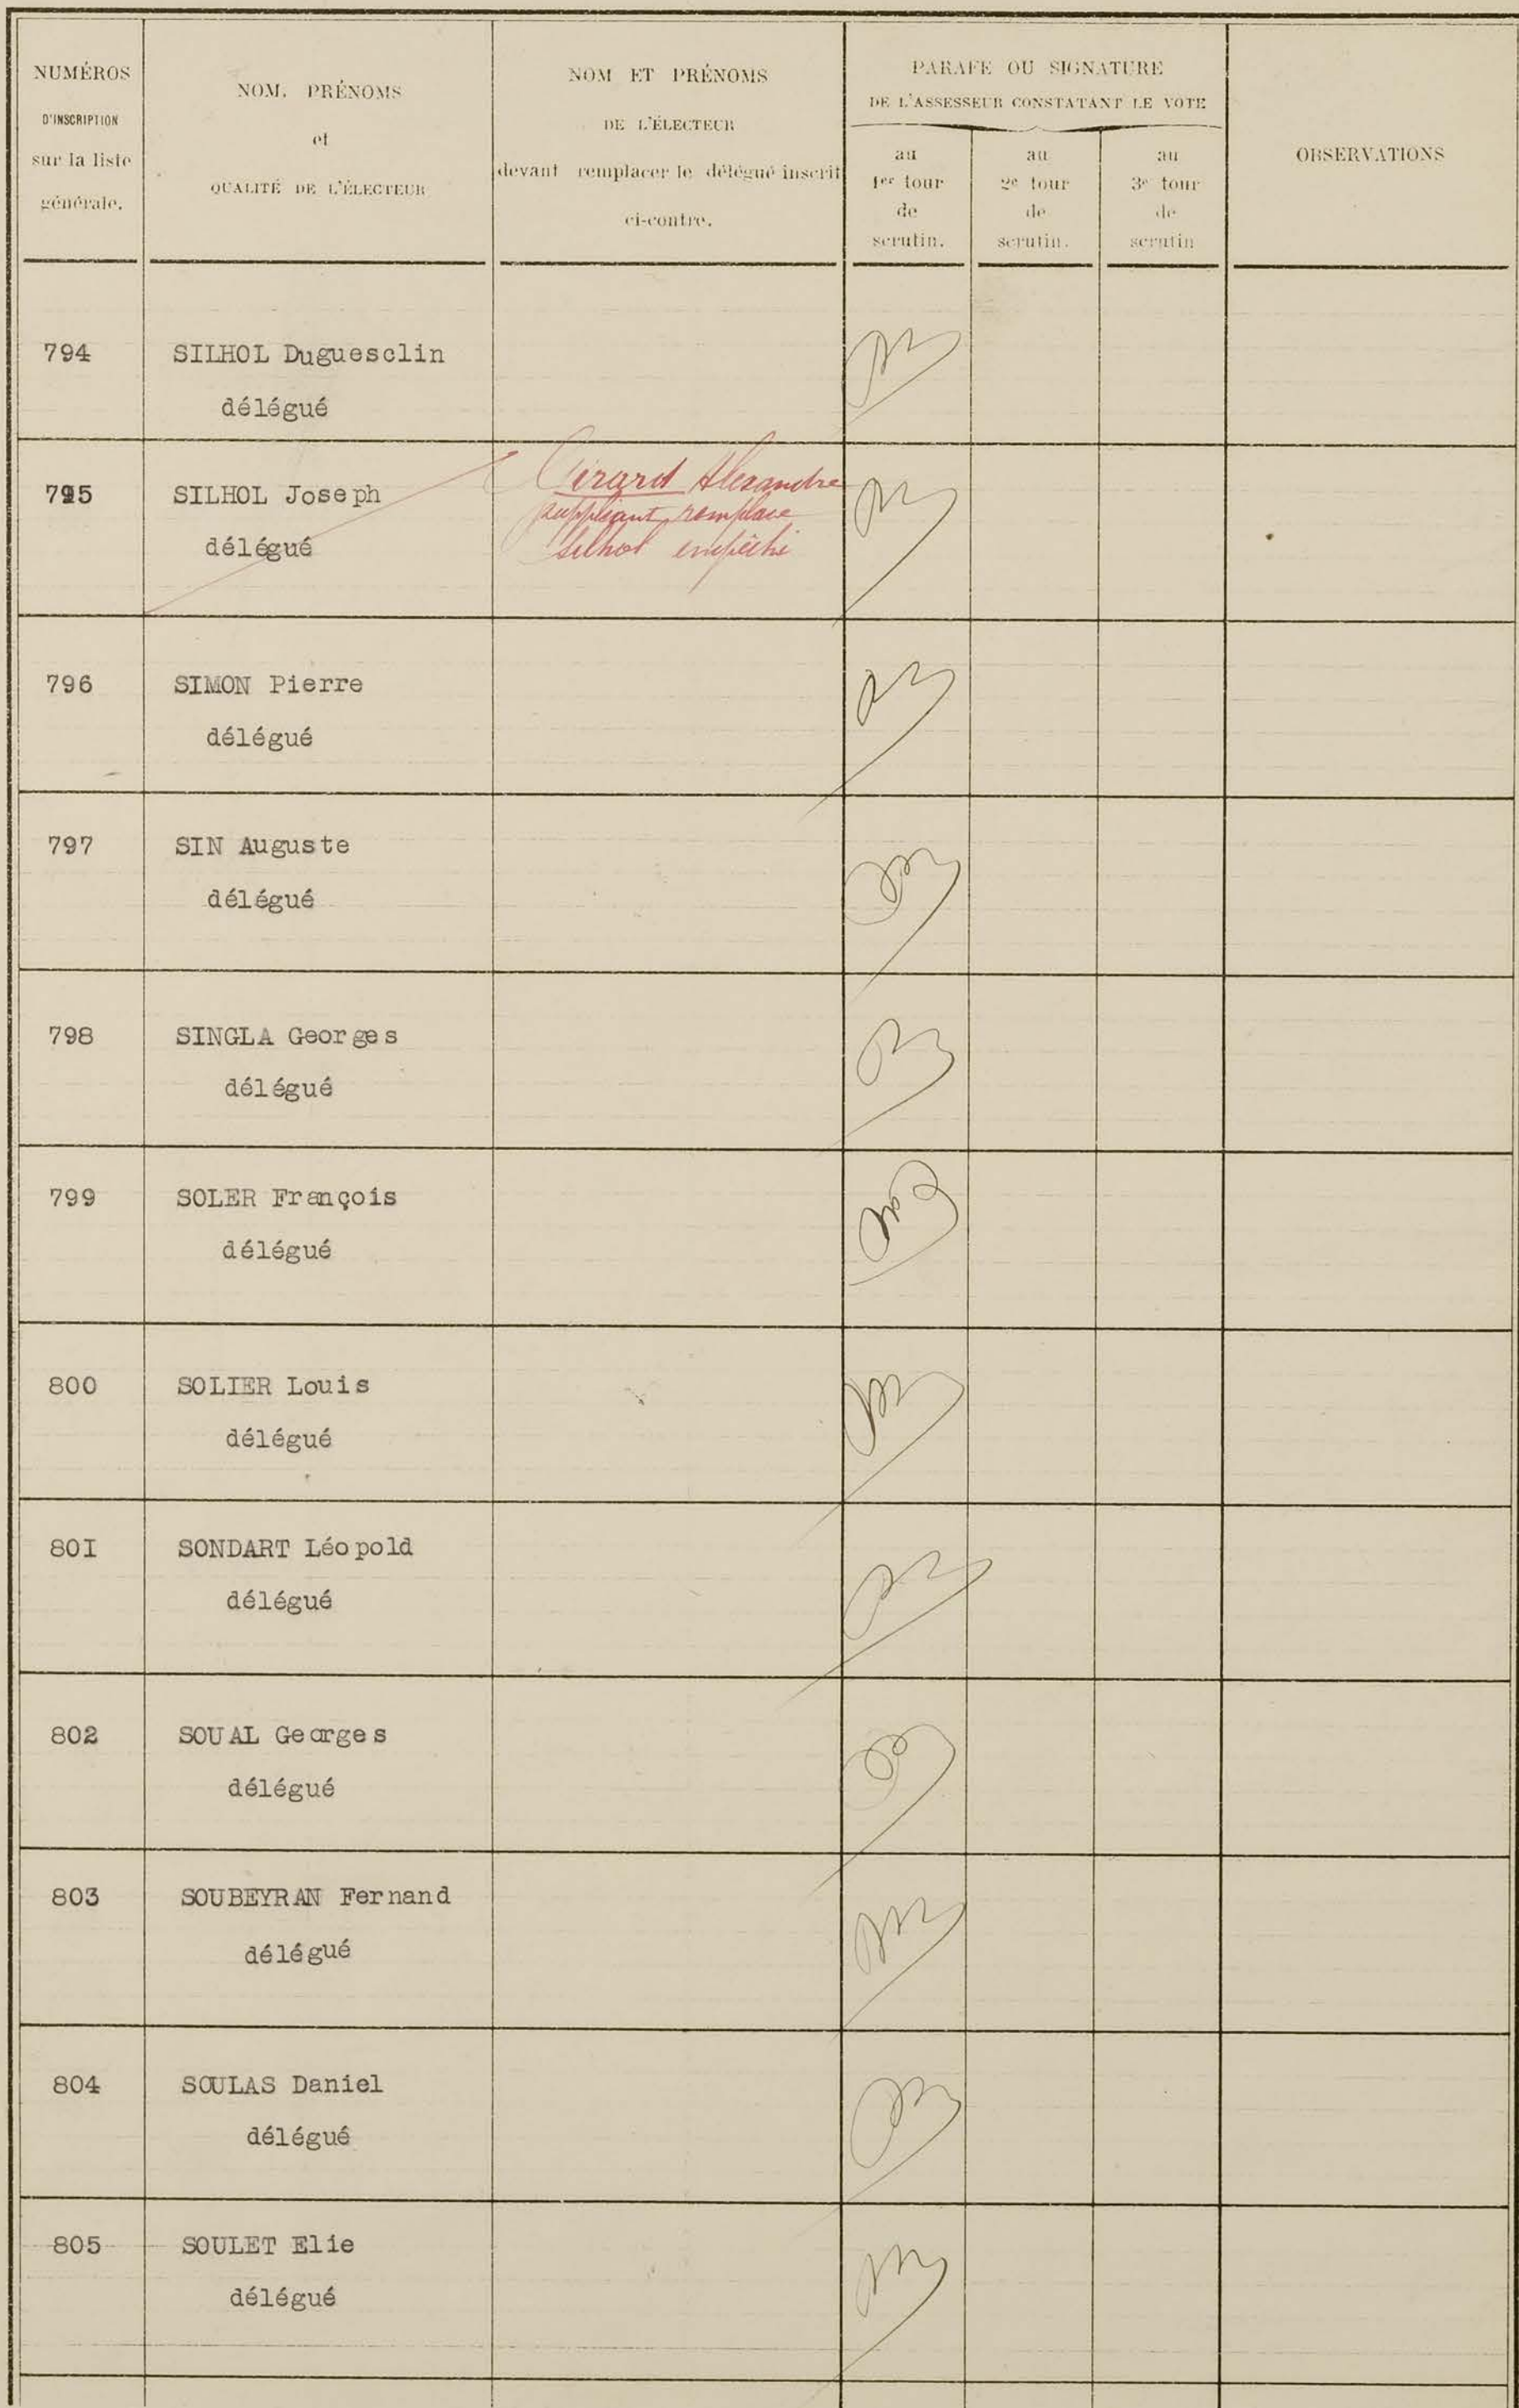 NUMÉROS
D'INSCRIPTION
sur la liste
générale.
NOM, PRÉNOMS
et
QUALITÉ DE L'ÉLECTEUR
NOM ET PRÉNOMS
DE L'ÉLECTEUR
devant remplacer le délégué inscrit
ci-contre.
PARAFE OU SIGNATURE
DE L'ASSESSEUR CONSTATANT LE VOTE
au
1er tour
de
scrutin.
au
2e tour
de
scrutin.
au
3e tour
de
scrutin
OBSERVATIONS
794 SILHOL Duguesclin
délégué
795 SILHOL Joseph
délégué
Girard Alexandre
suppléant remplace
Silhol empêché
796 SIMON Pierre
délégué
797 SIN Auguste
délégué
798 SINGLA Georges
délégué
799 SOLER François
délégué
800 SOLIER Louis
délégué
80I SONDART Léopold
délégué
802 SOUAL Georges
délégué
803 SOUBEYRAN Fernand
délégué
804 SOULAS Daniel
délégué
805 SOULET Elie
délégué